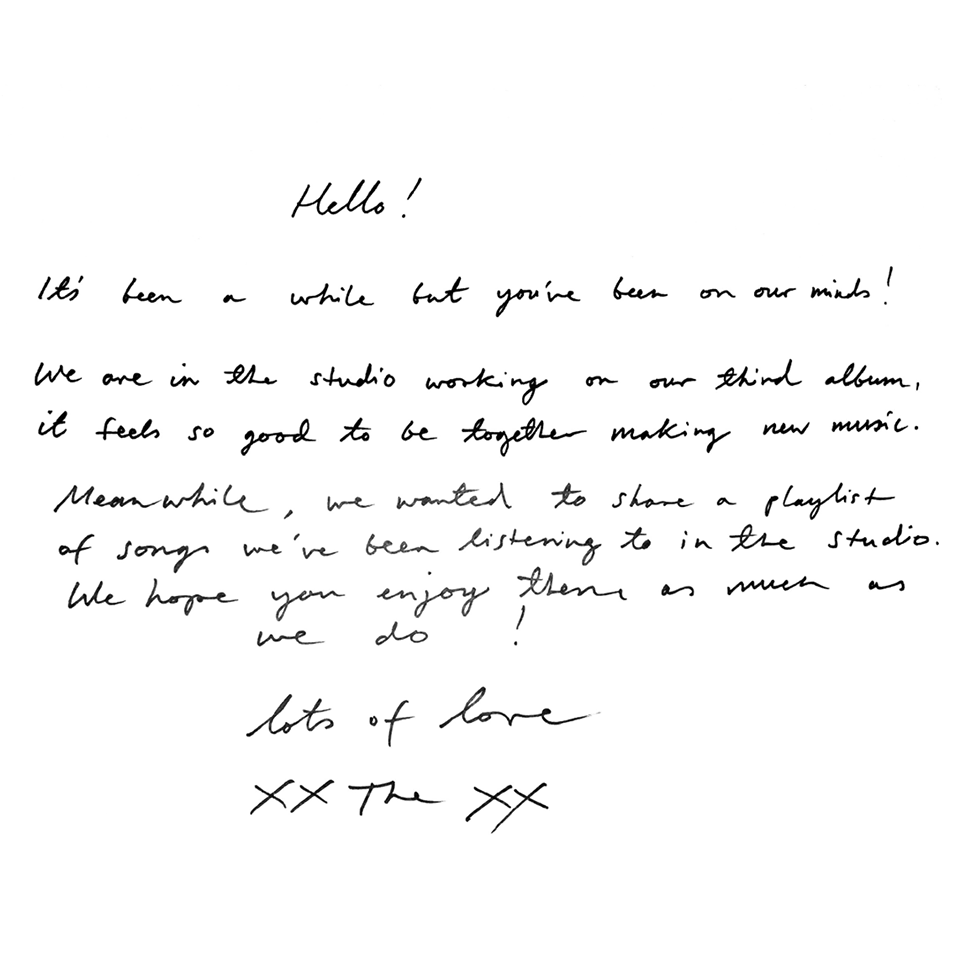 Hello!
It's been a while but you've been on our minds!
We are in the studio working on our third album,
it feels so good to be together making new music.
Meanwhile, we wanted to share a playlist
of songs we've been listening to in the studio.
We hope you enjoy them as much as
we do!
lots of love
xx The xx